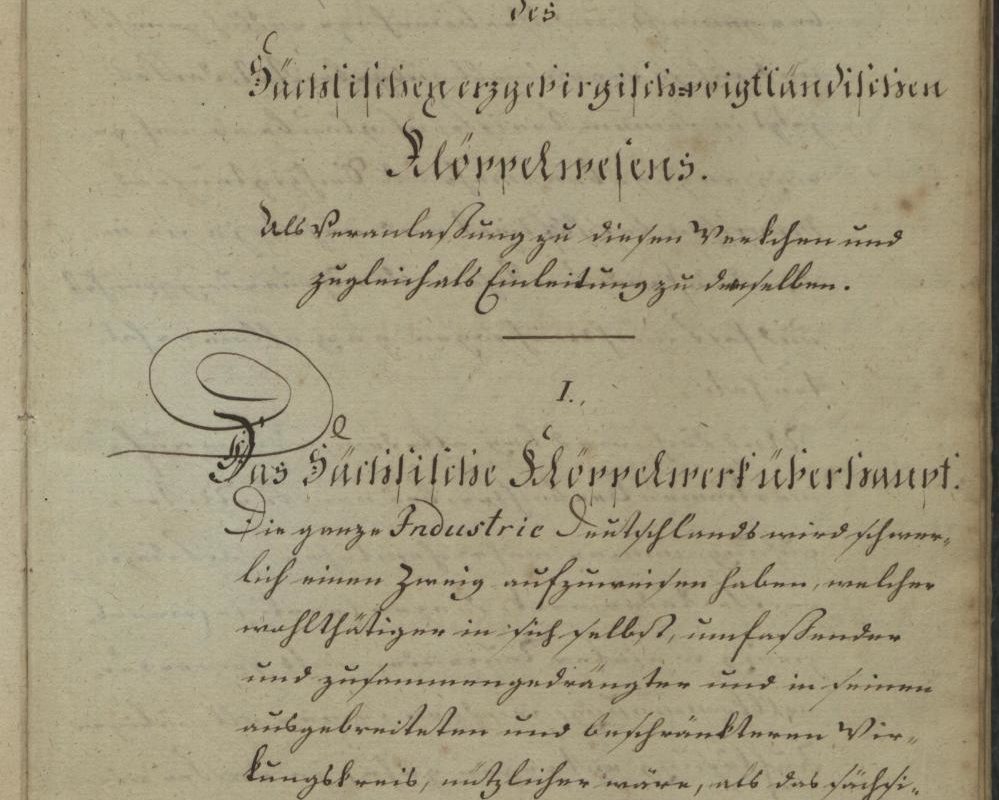 des
Sächsischen erzgebirgisch-voigtländischen
Klöppelwesens.
Als Veranlaßung zu diesen Werkchen und
zugleich als Einleitung zu demselben.
I.
Das Sächsische Klöppelwerk überhaupt.
Die ganze Industrie Deutschlands wird schwer-
lich einen Zweig aufzuweisen haben, welcher
wohlthätiger in sich selbst, umfaßender
und zusammengedrängter und in seinen
ausgebreiteten und beschränkteren Wir-
kungskreis, nützlicher wäre, als das sächsi-